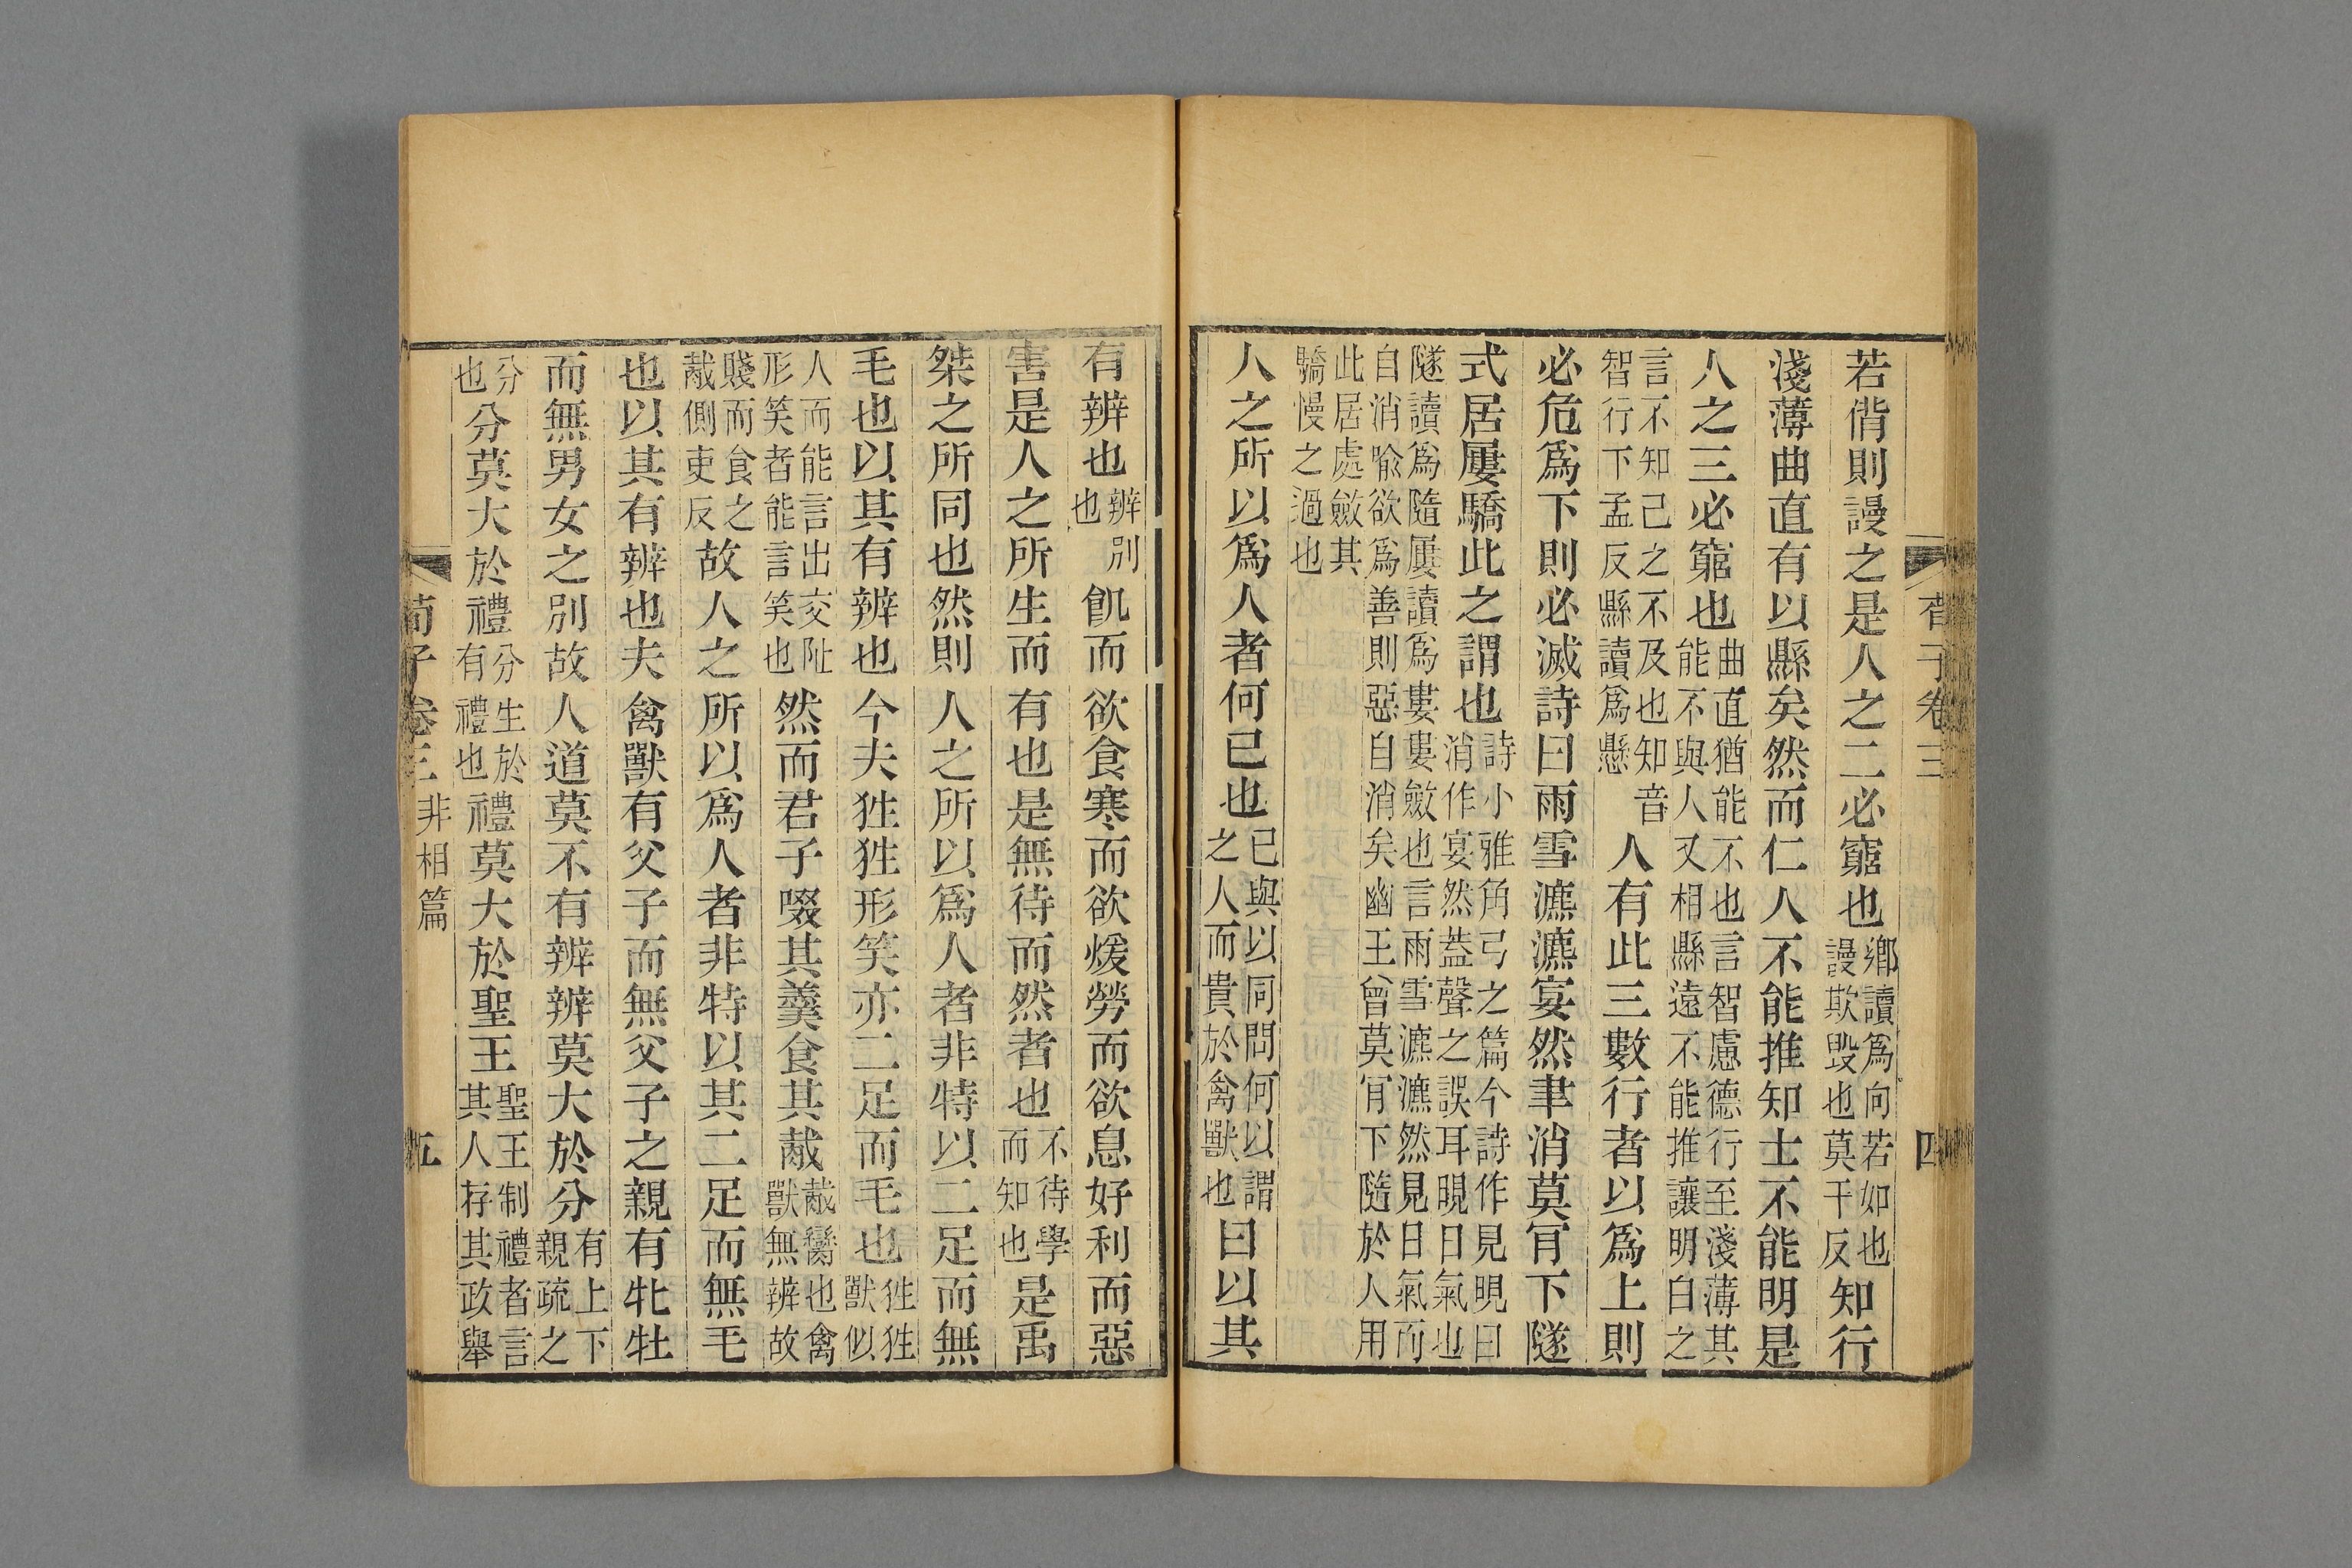 荀子卷三 四
若偝則謾之是人之二必窮也鄉讀爲向若如也謾欺毁也莫干反知行
淺薄曲直有以縣矣然而仁人不能推知士不能明是
人之三必窮也曲直猶能不也言智慮德行至淺薄其能不與人又相縣遠不能推讓明白之
言不知己之不及也知音智行下孟反縣讀爲懸人有此三數行者以爲上則
必危爲下則必滅詩曰雨雪瀌瀌宴然聿消莫肎下隧
式居屢驕此之謂也詩小雅角弓之篇今詩作見晛曰消作宴然葢聲之誤耳晛日氣也
隧讀爲隨屢讀爲婁婁斂也言雨雪瀌瀌然見日氣而自消喻欲爲善則惡自消矣幽王曾莫肎下隨於人用
此居處斂其驕慢之過也
人之所以爲人者何已也已與以同問何以謂之人而貴於禽獸也曰以其
有辨也辨別也飢而欲食寒而欲煖勞而欲息好利而惡
害是人之所生而有也是無待而然者也不待學而知也是禹
桀之所同也然則人之所以爲人者非特以二足而無
毛也以其有辨也今夫狌狌形笑亦二足而毛也狌狌獸似
人而能言出交阯形笑者能言笑也然而君子啜其羹食其胾胾臠也禽獸無辨故
賤而食之胾側吏反故人之所以爲人者非特以其二足而無毛
也以其有辨也夫禽獸有父子而無父子之親有牝牡
而無男女之別故人道莫不有辨辨莫大於分有上下親疏之
分也分莫大於禮分生於有禮也禮莫大於聖王聖王制禮者言其人存其政舉
荀子卷三 非相篇 五